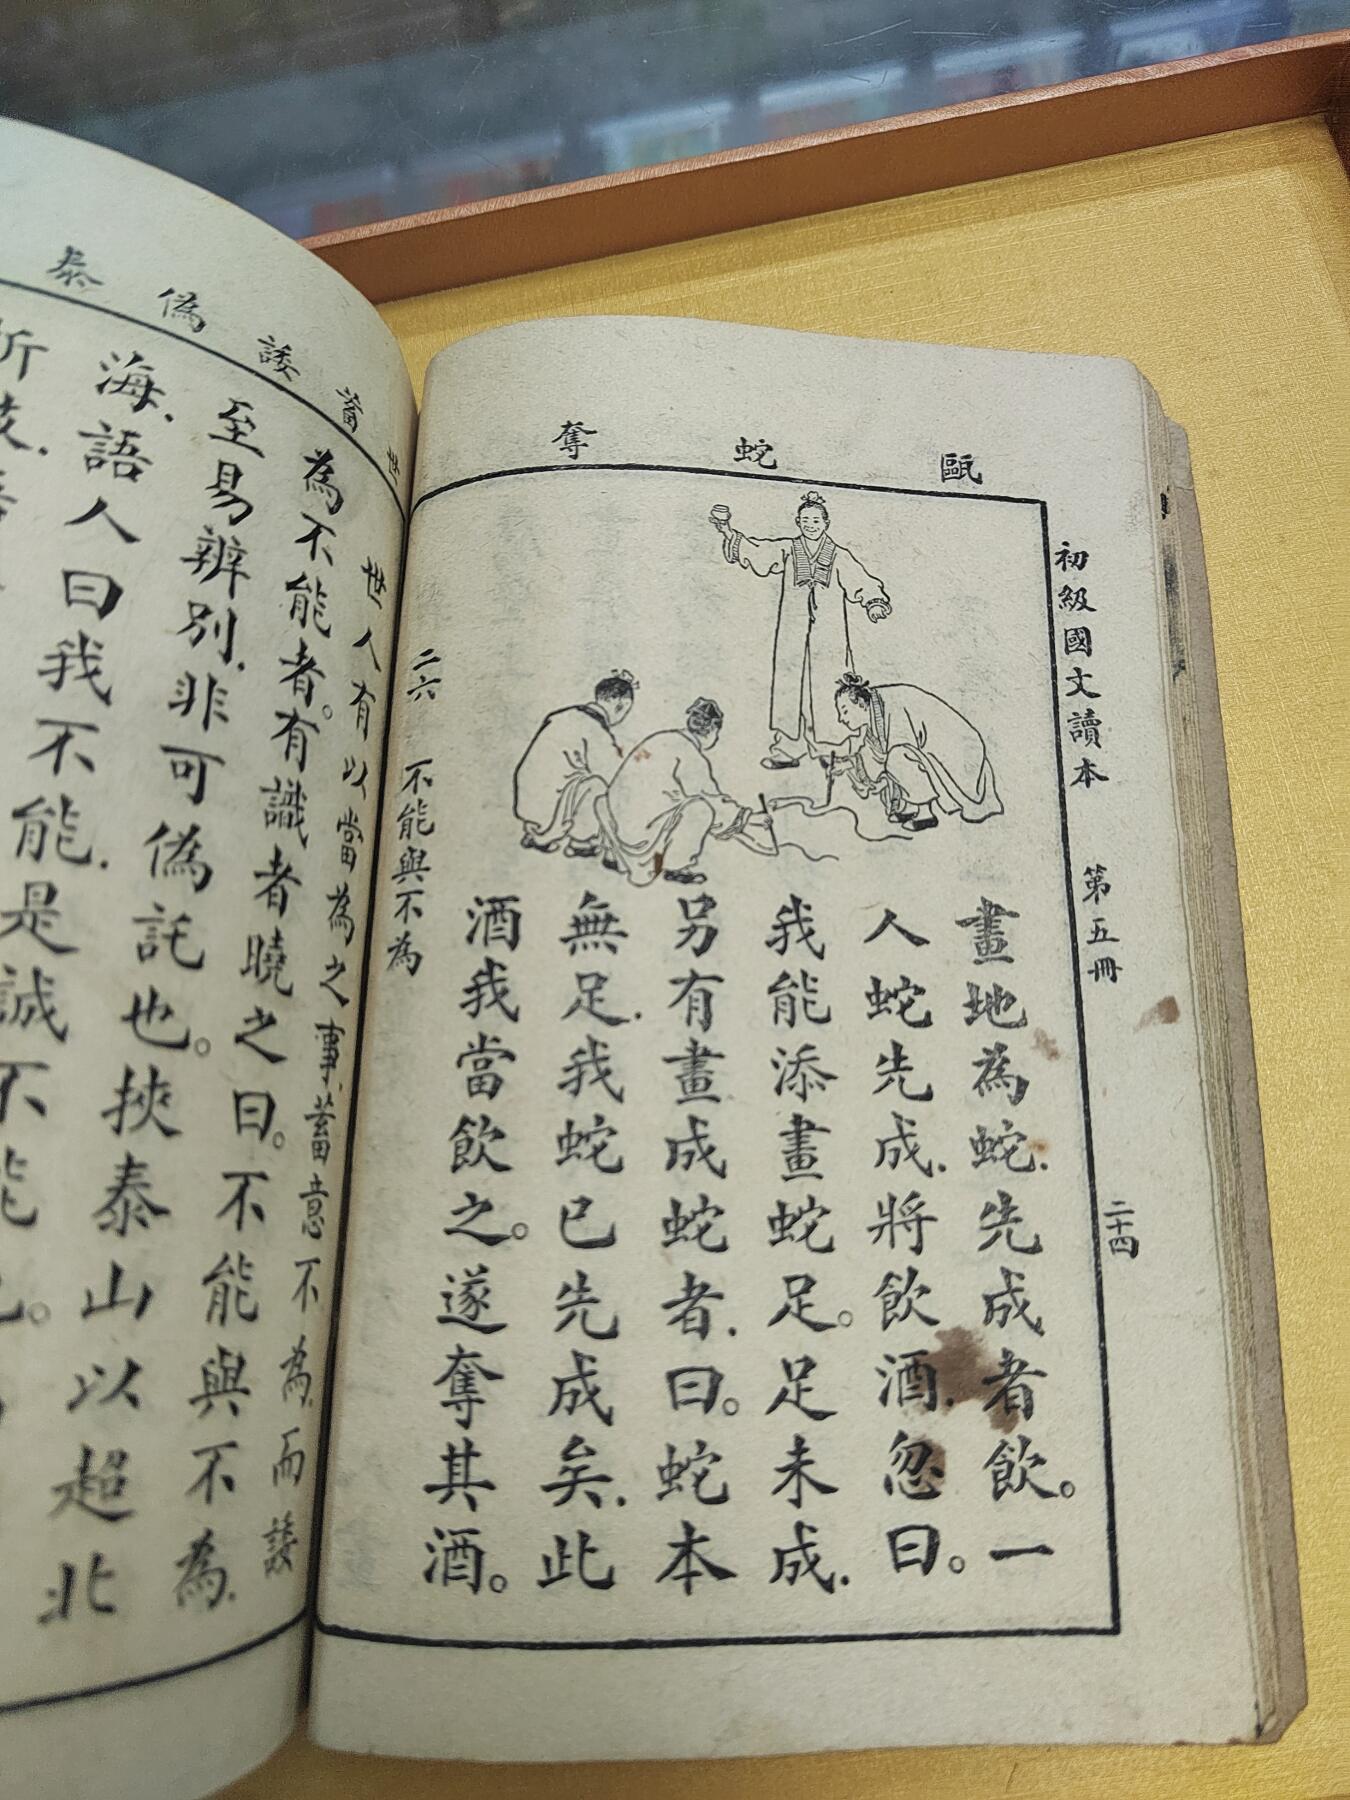 初級國文讀本 第五冊 二十四
甌 蛇 奪
畫地為蛇.先成者飲。一
人蛇先成.將飲酒.忽曰。
我能添畫蛇足。足未成.
另有畫成蛇者.曰。蛇本
無足.我蛇已先成矣.此
酒我當飲之。遂奪其酒。
二六 不能與不為
世 蓄 諉 偽 泰
世人有以當為之事.蓄意不為.而諉
為不能者。有識者曉之曰。不能與不為.
至易辨別.非可偽託也。挾泰山以超北
海.語人曰我不能.是誠不能也。
折枝.